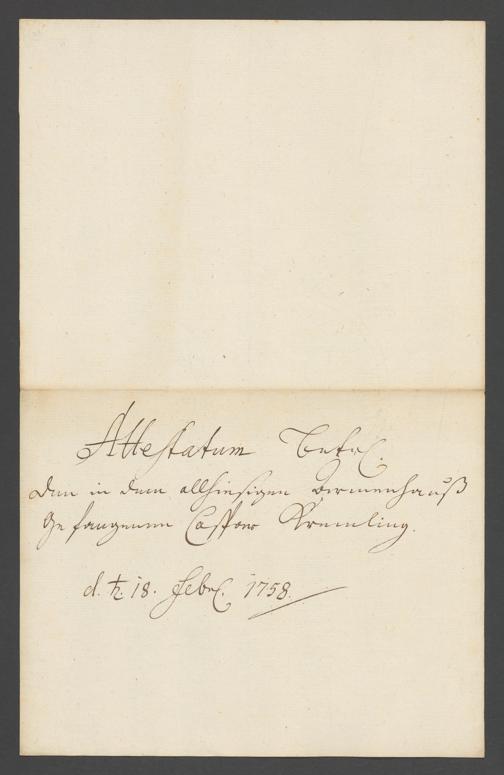 Attestatum Betr.
den in dem allhiesigen Armenhauß
gefangenen Casper Kremling.
d. t. 18. Febr. 1758.